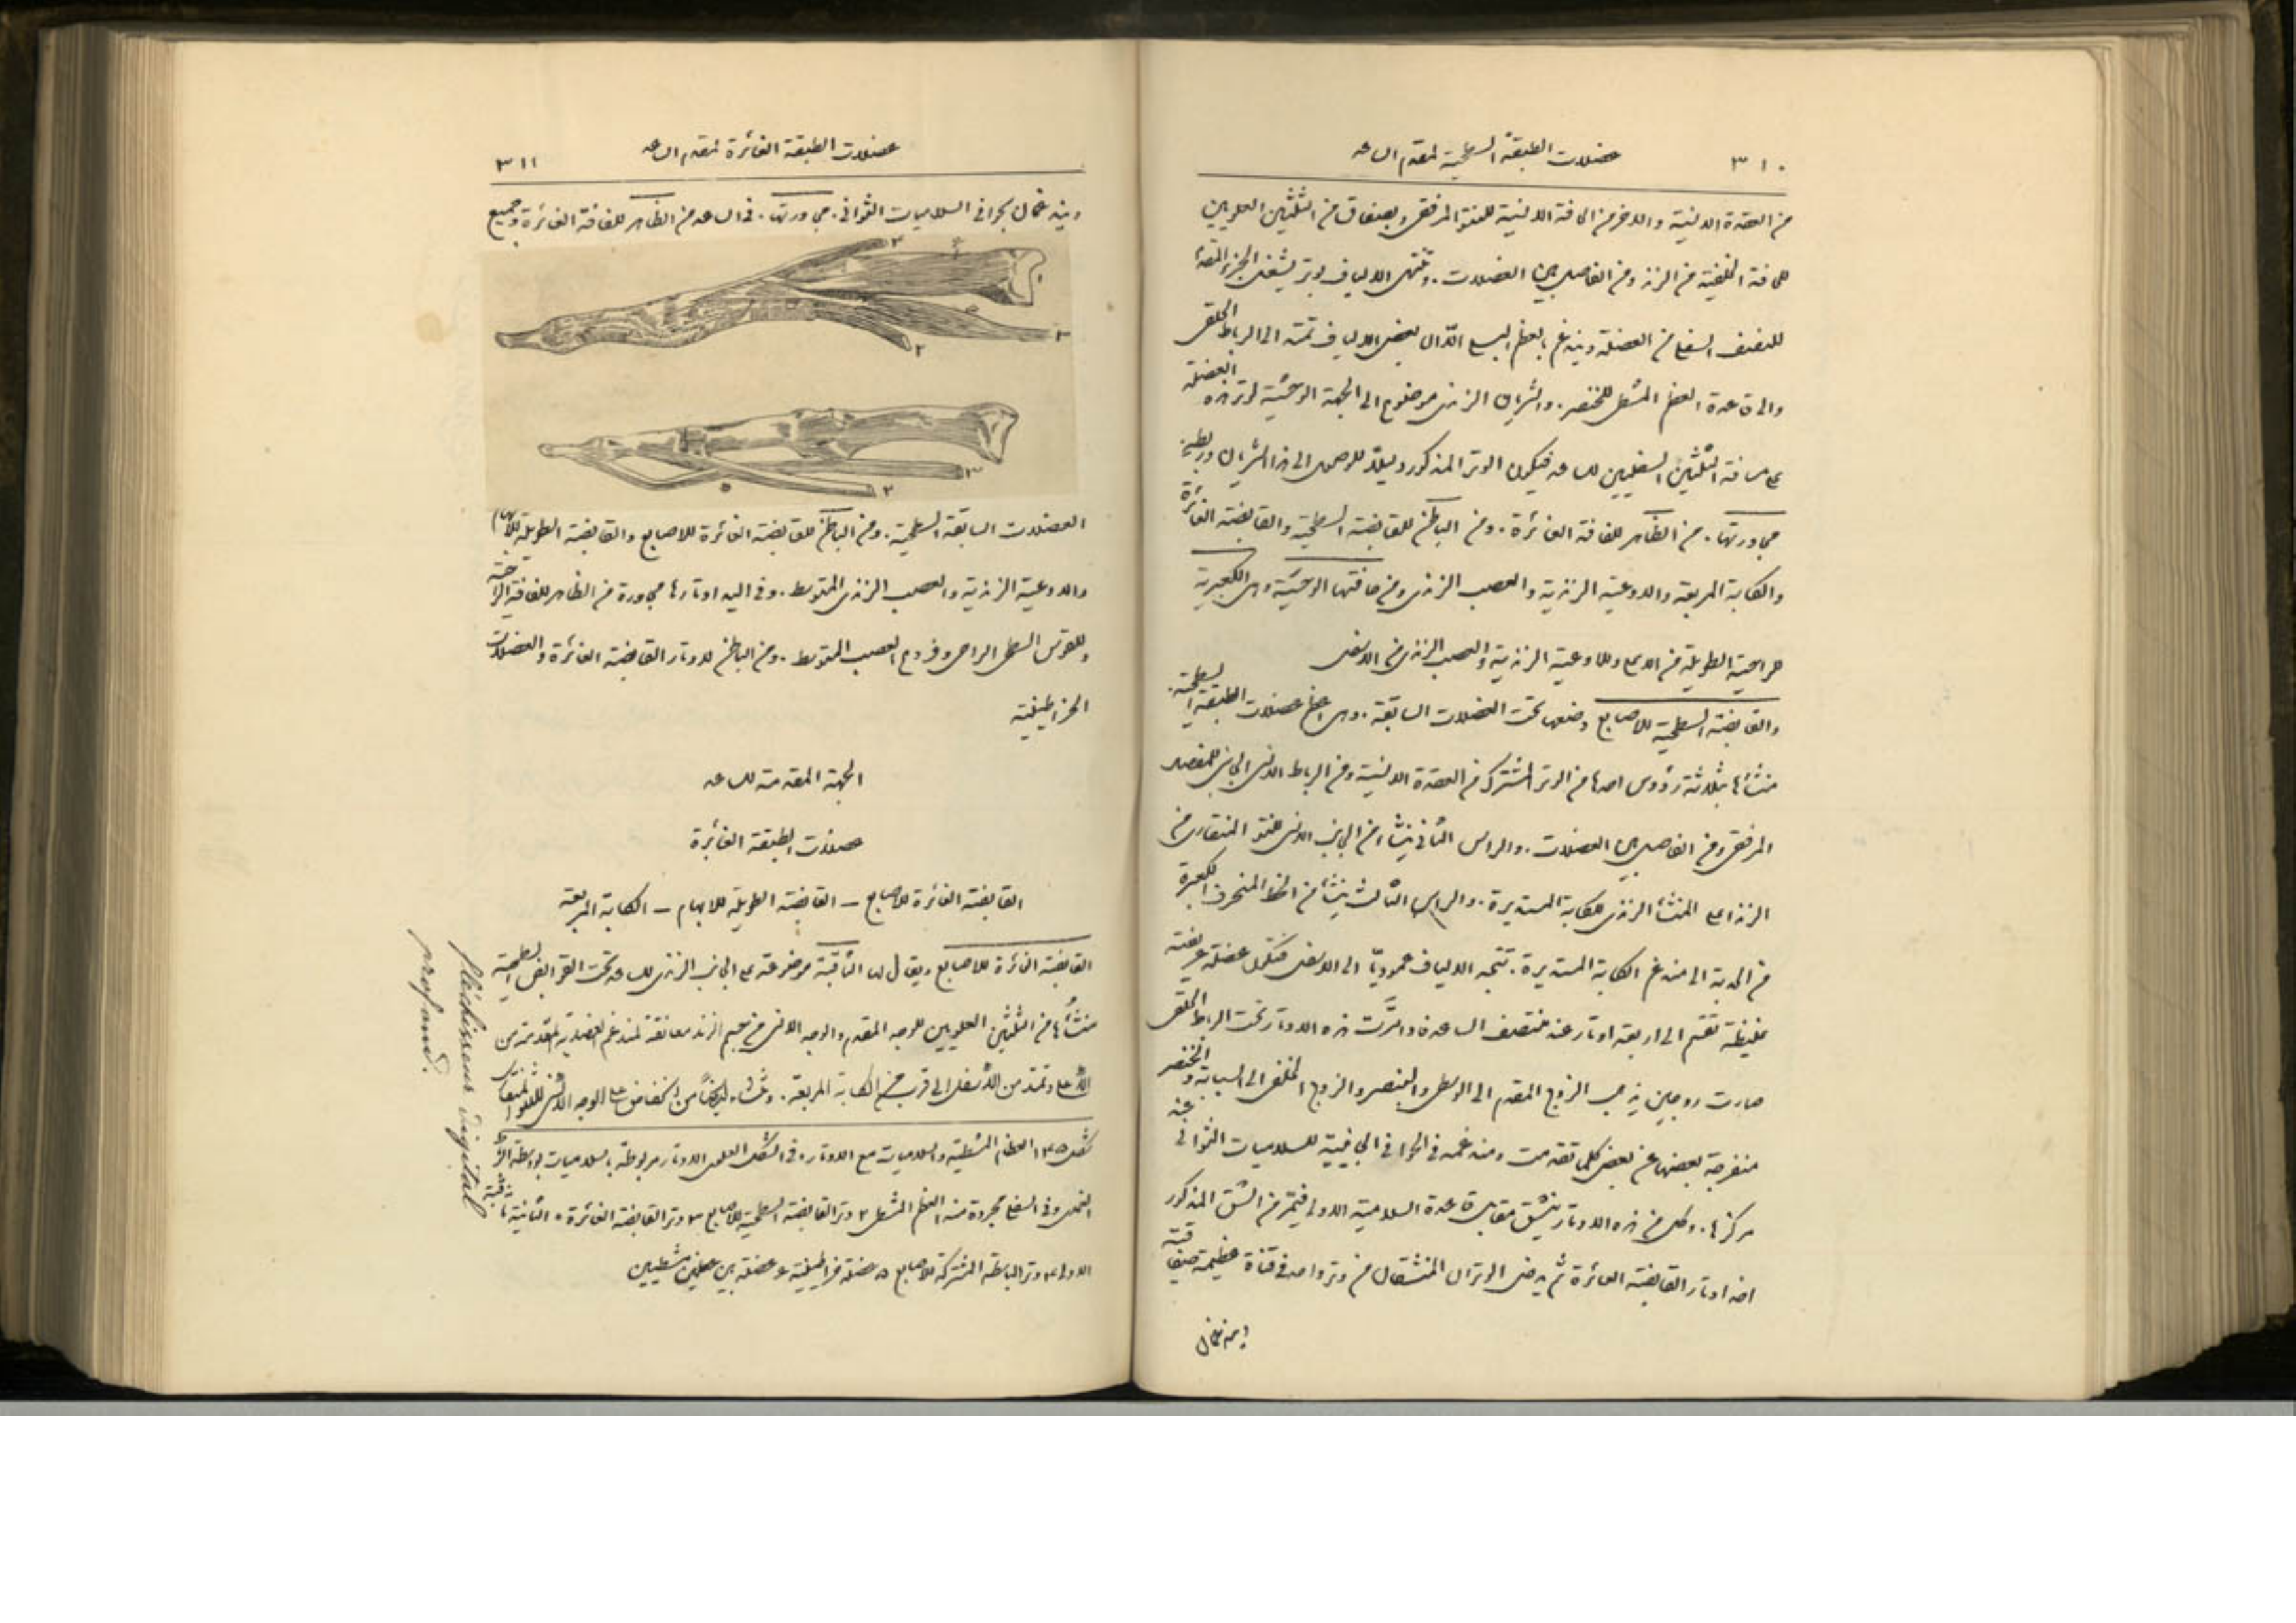 ٣١٠
عضلات الطبقة السطحية لمقدم الساعد
من العقدة الانسية والاخر من الحافة الانسية للنتوّ المرفقي وبصفاق من الثلثين العلويين
للحافة الخلفية من الزند ومن الفاصل بين العضلات. وتنتهي الالياف بوتر يشغل الجزء المقدم
للنصف السفلي من العضلة ويندغم بالعظم البسلي الّا ان بعض الالياف تمتد الى الرباط الحلقي
والى قاعدة العظم المشطي للخنصر. والشريان الزندي موضوع الى الجهة الوحشية لوتر هذه العضلة
في مسافة الثلثين السفليين للساعد فيكون الوتر المذكور دليلاً للوصول الى هذا الشريان وربطه.
مجاورتها. من الظاهر للفافة الغائرة. ومن الباطن للقابضة السطحية والقابضة الغائرة
والكابة المربعة والاوعية الزندية والعصب الزندي ومن حافتها الوحشية وهي الكعبرية
للراحية الطويلة من الاعلى وللاوعية الزندية والعصب الزندي من الاسفل
والقابضة السطحية للاصابع وضعها تحت العضلات السابقة. وهي اعظم عضلات الطبقة السطحية.
منشأها بثلاثة رؤوس احدها من الوتر المشترك من العقدة الانسية ومن الرباط الانسي الجانبي للمفصل
المرفقي ومن الفاصل بين العضلات. والراس الثاني ينشأ من الجانب الانسي للنتوّ المنقاري من
الزند اعلى المنشأ الزندي للكابة المستديرة. والراس الثالث ينشأ من الخط المنحرف للكعبرة
من الحدبة الى مندغم الكابة المستديرة. تتجه الالياف عموديًّا الى الاسفل فتكمل عضلة عريضة
غليظة تنقسم الى اربعة اوتار عند منتصف الساعد واذا مرّت هذه الاوتار تحت الرباط الحلقي
صارت زوجين يذهب الزوج المقدم الى الوسطى والبنصر والزوج الخلفي الى السبابة والخنصر
منفرجة بعضها عن بعض كلما تقدمت ومندغمة في الحوافي الجانبية للسلاميات الثواني عند
مركزها. وكل من هذه الاوتار ينشق مقابل قاعدة السلامية الاولى فيمر من الشق المذكور
احد اوتار القابضة الغائرة ثم يمضي الوتران المنشقان من وتر واحد في قناة عظيمة صفاقية
ويندغمان
عضلات الطبقة الغائرة لمقدم الساعد
٣١١
ويندغمان بحوافي السلاميات الثواني. مجاورتها. في الساعد من الظاهر للفافة الغائرة وجميع
١
٢
٣
٣
٣
٢
العضلات السابقة السطحية. ومن الباطن للقابضة الغائرة للاصابع والقابضة الطويلة للابهام
والاوعية الزندية والعصب الزندي المتوسط. وفي اليد اوتارها مجاورة من الظاهر للفافة الراحية
وللقوس السطحي الراحي وفروع العصب المتوسط. ومن الباطن لاوتار القابضة الغائرة والعضلات
الخراطينية
الجهة المقدمة للساعد
عضلات الطبقة الغائرة
القابضة الغائرة للاصابع – القابضة الطويلة للابهام – الكابة المربعة
القابضة الغائرة للاصابع ويقال لها الثاقبة موضوعة على الجانب الزندي للساعد تحت القوابض السطحية
منشأها من الثلثين العلويين للوجه المقدم والوجه الانسي من جسم الزند معانقة لمندغم العضدية المقدمة من
الاعلى وتمتد من الاسفل الى قرب من الكابة المربعة. وتنشاء ايضًا من انخفاض على الوجه الانسي للنتوّ المنقاري
شكل ١٣٥ العظام المشطية والسلاميات مع الاوتار. في الشكل العلوي الاوتار مربوطة بالسلاميات بواسطة الرباط
الغمدي وفي السفلي مجردة منه ١ العظم المشطي ٢ وتر القابضة السطحية للاصابع ٣ وتر القابضة الغائرة
الاولى ٤ وتر الباسطة المشتركة للاصابع ٥ عضلة خراطينية ٦ عضلة بين عظمين مشطيين
fléchisseur digital
profond.